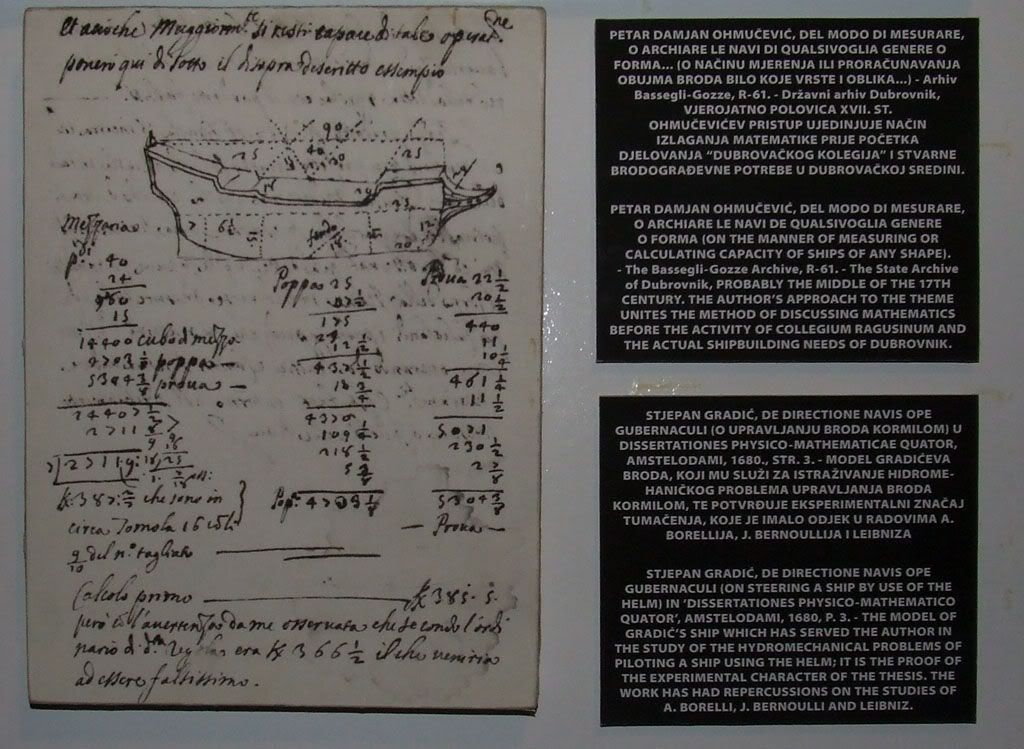 Et accioche Maggiorm.te si resti capace di tale operat.ne
poneró qui di sotto il di sopra descritto essempio
90
25
40
30
25
33
6½
fondo
18
20
12
Mezzaria
p.di
40
24
960
15
14400 cubo di mezzo
4703 ⅛ poppa —
5304 ⅜ proua —
24407 ½
2711
Poppa 25
175
12 ½
437 ½
4320
109 ¼
218 ½
Pop.
Proua 22 ½
20 ½
440
11
10 ¼
461 ¼
11 ½
5071
230 ½
5304 ⅜
— Proua —
che sono in
circa Tomola 16
9/10 del n.o tagliato
Calcolo primo 385. 5.
però co l'auertenza da me osseruata che secondo l'ordi
nario di d.ta regola era 366 ½ il che veniria
ad essere falsissimo.
PETAR DAMJAN OHMUČEVIĆ, DEL MODO DI MESURARE,
O ARCHIARE LE NAVI DI QUALSIVOGLIA GENERE O
FORMA... (O NAČINU MJERENJA ILI PRORAČUNAVANJA
OBUJMA BRODA BILO KOJE VRSTE I OBLIKA...) - Arhiv
Bassegli-Gozze, R-61. - Državni arhiv Dubrovnik,
VJEROJATNO POLOVICA XVII. ST.
OHMUČEVIĆEV PRISTUP UJEDINJUJE NAČIN
IZLAGANJA MATEMATIKE PRIJE POČETKA
DJELOVANJA "DUBROVAČKOG KOLEGIJA" I STVARNE
BRODOGRAĐEVNE POTREBE U DUBROVAČKOJ SREDINI.
PETAR DAMJAN OHMUČEVIĆ, DEL MODO DI MESURARE,
O ARCHIARE LE NAVI DE QUALSIVOGLIA GENERE
O FORMA (ON THE MANNER OF MEASURING OR
CALCULATING CAPACITY OF SHIPS OF ANY SHAPE).
- The Bassegli-Gozze Archive, R-61. - The State Archive
of Dubrovnik, PROBABLY THE MIDDLE OF THE 17TH
CENTURY. THE AUTHOR'S APPROACH TO THE THEME
UNITES THE METHOD OF DISCUSSING MATHEMATICS
BEFORE THE ACTIVITY OF COLLEGIUM RAGUSINUM AND
THE ACTUAL SHIPBUILDING NEEDS OF DUBROVNIK.
STJEPAN GRADIĆ, DE DIRECTIONE NAVIS OPE
GUBERNACULI (O UPRAVLJANJU BRODA KORMILOM) U
DISSERTATIONES PHYSICO-MATHEMATICAE QUATOR,
AMSTELODAMI, 1680., STR. 3. - MODEL GRADIĆEVA
BRODA, KOJI MU SLUŽI ZA ISTRAŽIVANJE HIDROME-
HANIČKOG PROBLEMA UPRAVLJANJA BRODA
KORMILOM, TE POTVRĐUJE EKSPERIMENTALNI ZNAČAJ
TUMAČENJA, KOJE JE IMALO ODJEK U RADOVIMA A.
BORELLIJA, J. BERNOULLIJA I LEIBNIZA
STJEPAN GRADIĆ, DE DIRECTIONE NAVIS OPE
GUBERNACULI (ON STEERING A SHIP BY USE OF THE
HELM) IN 'DISSERTATIONES PHYSICO-MATHEMATICO
QUATOR', AMSTELODAMI, 1680, P. 3. - THE MODEL OF
GRADIĆ'S SHIP WHICH HAS SERVED THE AUTHOR IN
THE STUDY OF THE HYDROMECHANICAL PROBLEMS OF
PILOTING A SHIP USING THE HELM; IT IS THE PROOF OF
THE EXPERIMENTAL CHARACTER OF THE THESIS. THE
WORK HAS HAD REPERCUSSIONS ON THE STUDIES OF
A. BORELLI, J. BERNOULLI AND LEIBNIZ.